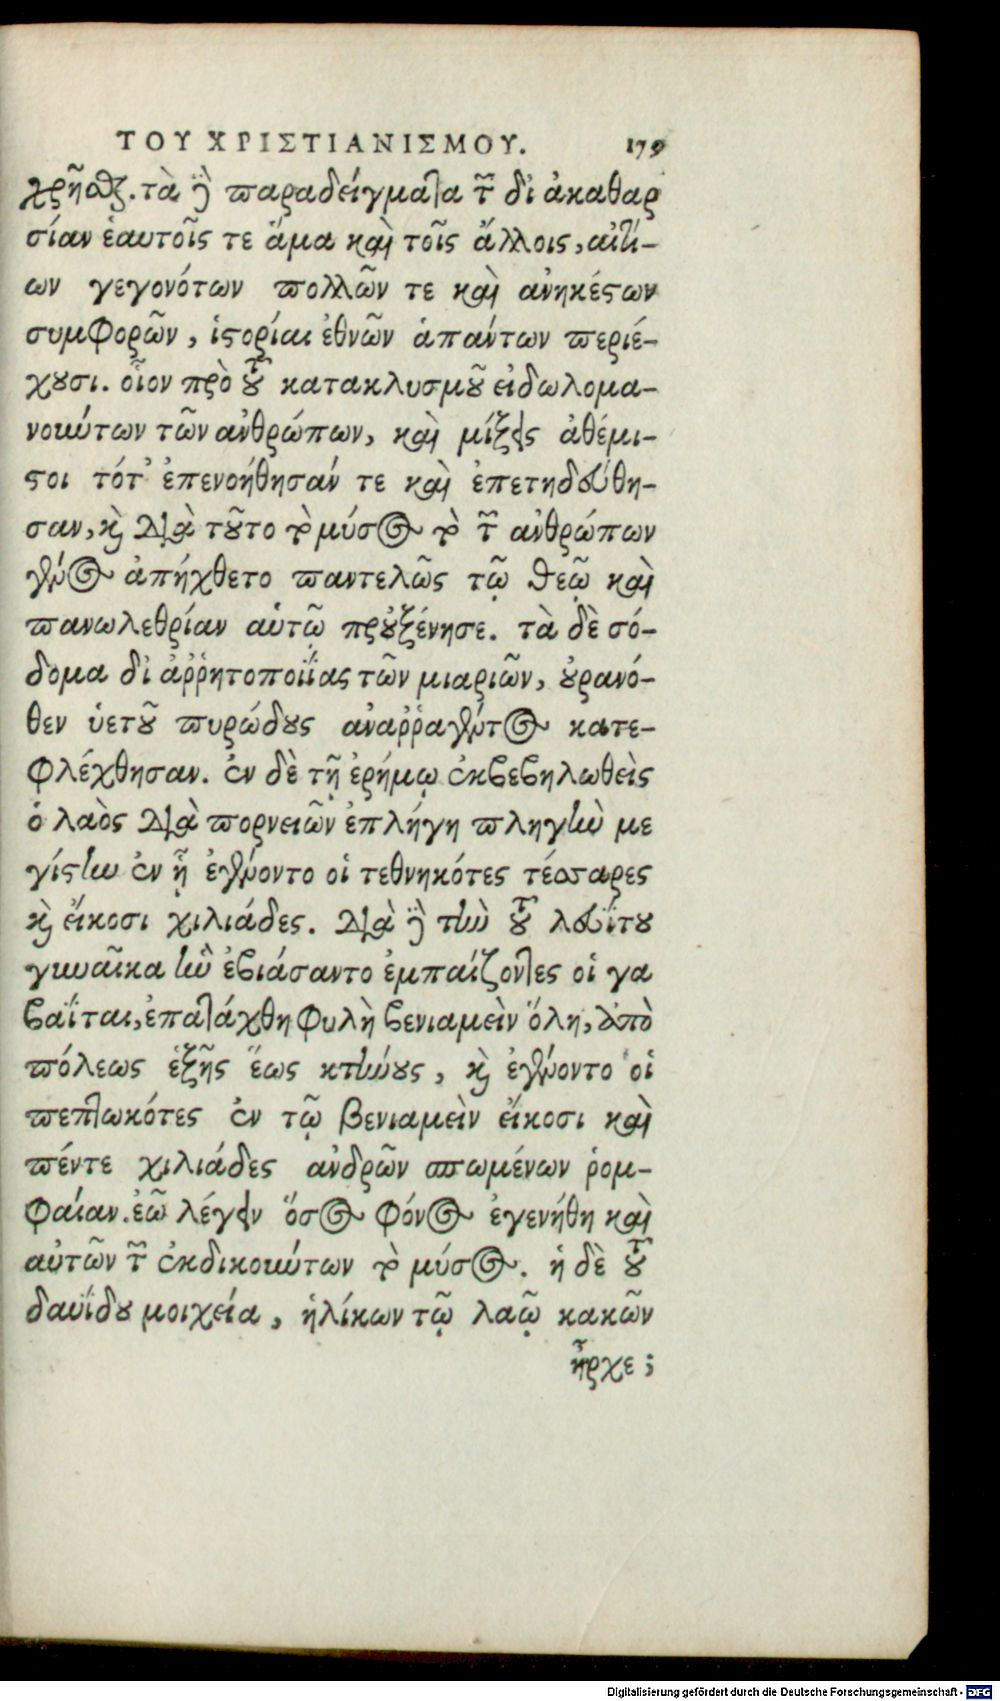 ΤΟΥ ΧΡΙΣΤΙΑΝΙΣΜΟΥ. 179
χρῆσθαι. τὰ γὰρ παραδείγματα τῶν δι ἀκαθαρ
σίαν ἑαυτοῖς τε ἅμα καὶ τοῖς ἄλλοις, αἰτί-
ων γεγονότων πολλῶν τε καὶ ἀνηκέστων
συμφορῶν, ἱστορίαι ἐθνῶν ἁπάντων περιέ-
χουσι. οἷον πρὸ τοῦ κατακλυσμοῦ εἰδωλομα-
νούντων τῶν ἀνθρώπων, καὶ μίξεις ἀθέμι-
στοι τότ' ἐπενοήθησάν τε καὶ ἐπετηδεύθη-
σαν, καὶ διὰ τοῦτο τὸ μύσος τὸ τῶν ἀνθρώπων
γένος ἀπήχθετο παντελῶς τῷ θεῷ καὶ
πανωλεθρίαν αὑτῷ προὐξένησε. τὰ δὲ σό-
δομα δι ἀῤῥητοποιΐας τῶν μιαριῶν, οὐρανό-
θεν ὑετοῦ πυρώδους ἀναῤῥαγέντος κατε-
φλέχθησαν. ἐν δὲ τῇ ἐρήμῳ ἐκβεβηλωθεὶς
ὁ λαὸς διὰ πορνειῶν ἐπλήγη πληγὴν με
γίστην ἐν ᾗ ἐγένοντο οἱ τεθνηκότες τέσσαρες
καὶ εἴκοσι χιλιάδες. διὰ γὰρ τὴν τοῦ λευΐτου
γυναῖκα ἣν ἐβιάσαντο ἐμπαίζοντες οἱ γα
βαΐται, ἐπατάχθη φυλὴ βενιαμεὶν ὅλη, ἀπὸ
πόλεως ἑξῆς ἕως κτήνους, καὶ ἐγένοντο οἱ
πεπτωκότες ἐν τῷ βενιαμεὶν εἴκοσι καὶ
πέντε χιλιάδες ἀνδρῶν σπωμένων ῥομ-
φαίαν. ἐῶ λέγειν ὅσος φόνος ἐγενήθη καὶ
αὐτῶν τῶν ἐκδικούντων τὸ μύσος. ἡ δὲ τοῦ
δαυΐδου μοιχεία, ἡλίκων τῷ λαῷ κακῶν
ἦρχε;
Digitalisierung gefördert durch die Deutsche Forschungsgemeinschaft - DFG